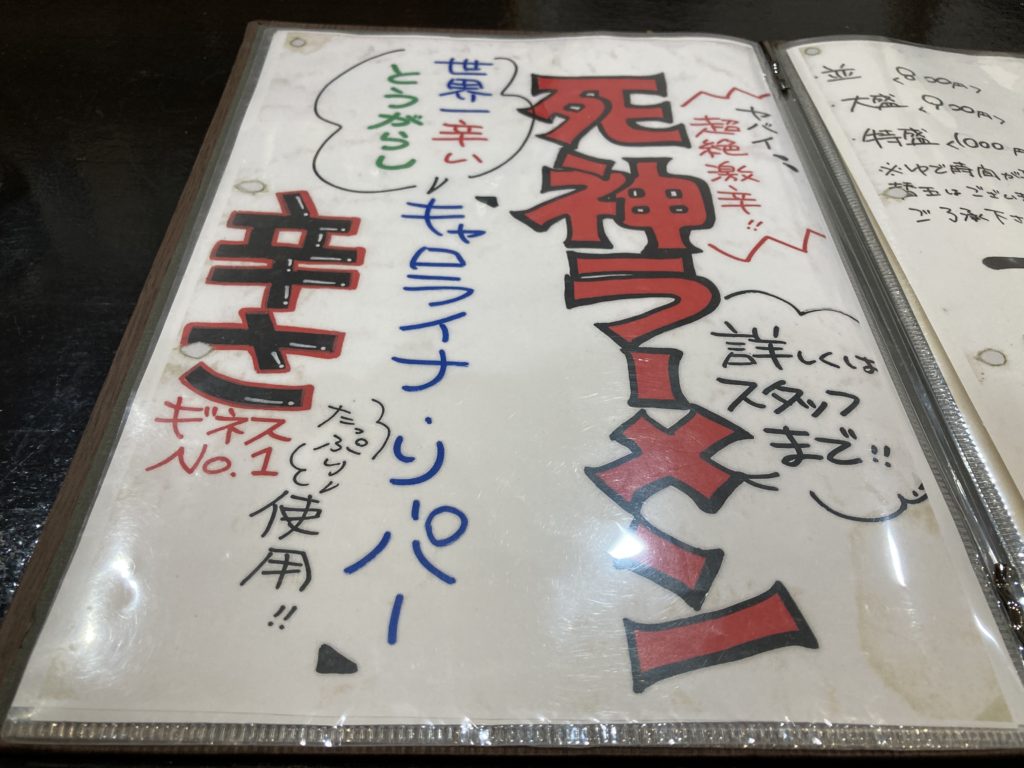 ヤバイ!
超絶激辛!!
死神ラーメン
詳しくは
スタッフ
まで!!
世界一辛い
とうがらし
キャロライナ・リーパー
たっぷり
使用!!
辛さ
ギネス
No.1
並
大盛 900円
特盛 1000円
※ゆで時間が
替玉はござい
ご了承下さ